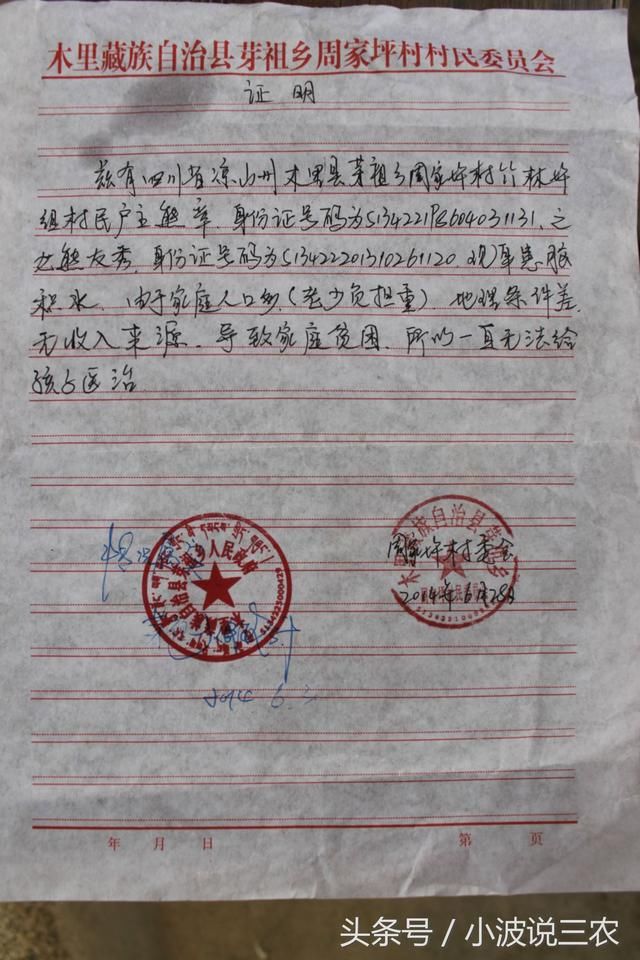 木里藏族自治县芽祖乡周家坪村村民委员会
证明
兹有四川省凉山州木里县芽祖乡周家坪村竹林坪
组村民户主熊章,身份证号码为513422198604031131,之
女熊友秀,身份证号码为513422201310261120,现年患脑
积水,由于家庭人口多(老少负担重)地理条件差,
无收入来源,导致家庭贫困,所以一直无法给
孩子医治
木里藏族自治县芽祖乡人民政府
5134223000427
周家坪村委会
2014年6月28日
2014.6.3
年 月 日 第 页
头条号 / 小波说三农